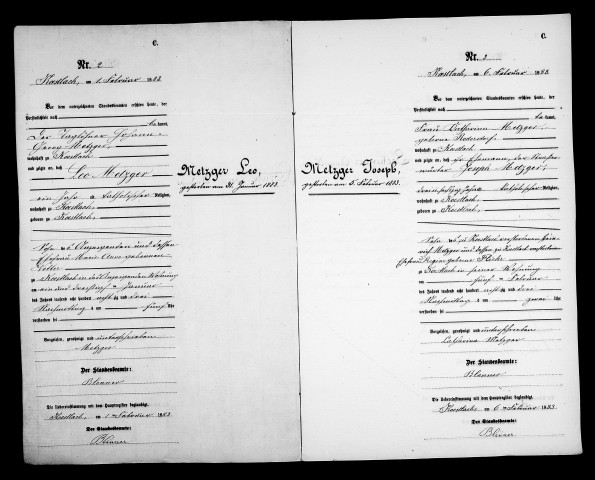 C.
Nr. 2
Kœstlach, am 1. Februar 1883.
Vor dem unterzeichneten Standesbeamten erschien heute, der
Persönlichkeit nach
bekannt,
Der Taglöhner Johann
Georg Metzger
wohnhaft zu Kœstlach
und zeigte an, daß
Leo Metzger
ein Jahr alt, katholischer Religion,
wohnhaft zu Kœstlach
geboren zu Kœstlach,
Sohn des Anzeigenden und dessen
Ehefrau Maria Anna geborenen
zu Kœstlach in des Anzeigenden Wohnung
am ein und dreißigsten Januar
des Jahres tausend acht hundert achtzig und drei
Nachmittags um fünf Uhr
verstorben sei
Vorgelesen, genehmigt und unterschrieben
Metzger
Der Standesbeamte:
Blenner
Die Uebereinstimmung mit dem Hauptregister beglaubigt.
Kœstlach, am 1. Februar 1883.
Der Standesbeamte:
Blenner
Metzger Leo,
gestorben am 31. Januar 1883.
Metzger Joseph,
gestorben am 5. Februar 1883.
C.
Nr. 3
Kœstlach, am 6. Februar 1883.
Vor dem unterzeichneten Standesbeamten erschien heute, der
Persönlichkeit nach
bekannt,
Frau Catharina Metzger
geborene
wohnhaft zu Kœstlach
und zeigte an, daß ihr Ehemann, der
Joseph Metzger,
Jahre alt, katholischer Religion,
wohnhaft zu Kœstlach
geboren zu Kœstlach,
Sohn des zu Kœstlach verstorbenen
Metzger und dessen zu Kœstlach verstorbenen
Ehefrau Regina geborene
zu Kœstlach in seiner Wohnung
am fünften Februar
des Jahres tausend acht hundert achtzig und drei
Nachmittags um zwei Uhr
verstorben sei
Vorgelesen, genehmigt und unterschrieben
Catharina Metzger
Der Standesbeamte:
Blenner
Die Uebereinstimmung mit dem Hauptregister beglaubigt.
Kœstlach, am 6. Februar 1883.
Der Standesbeamte:
Blenner